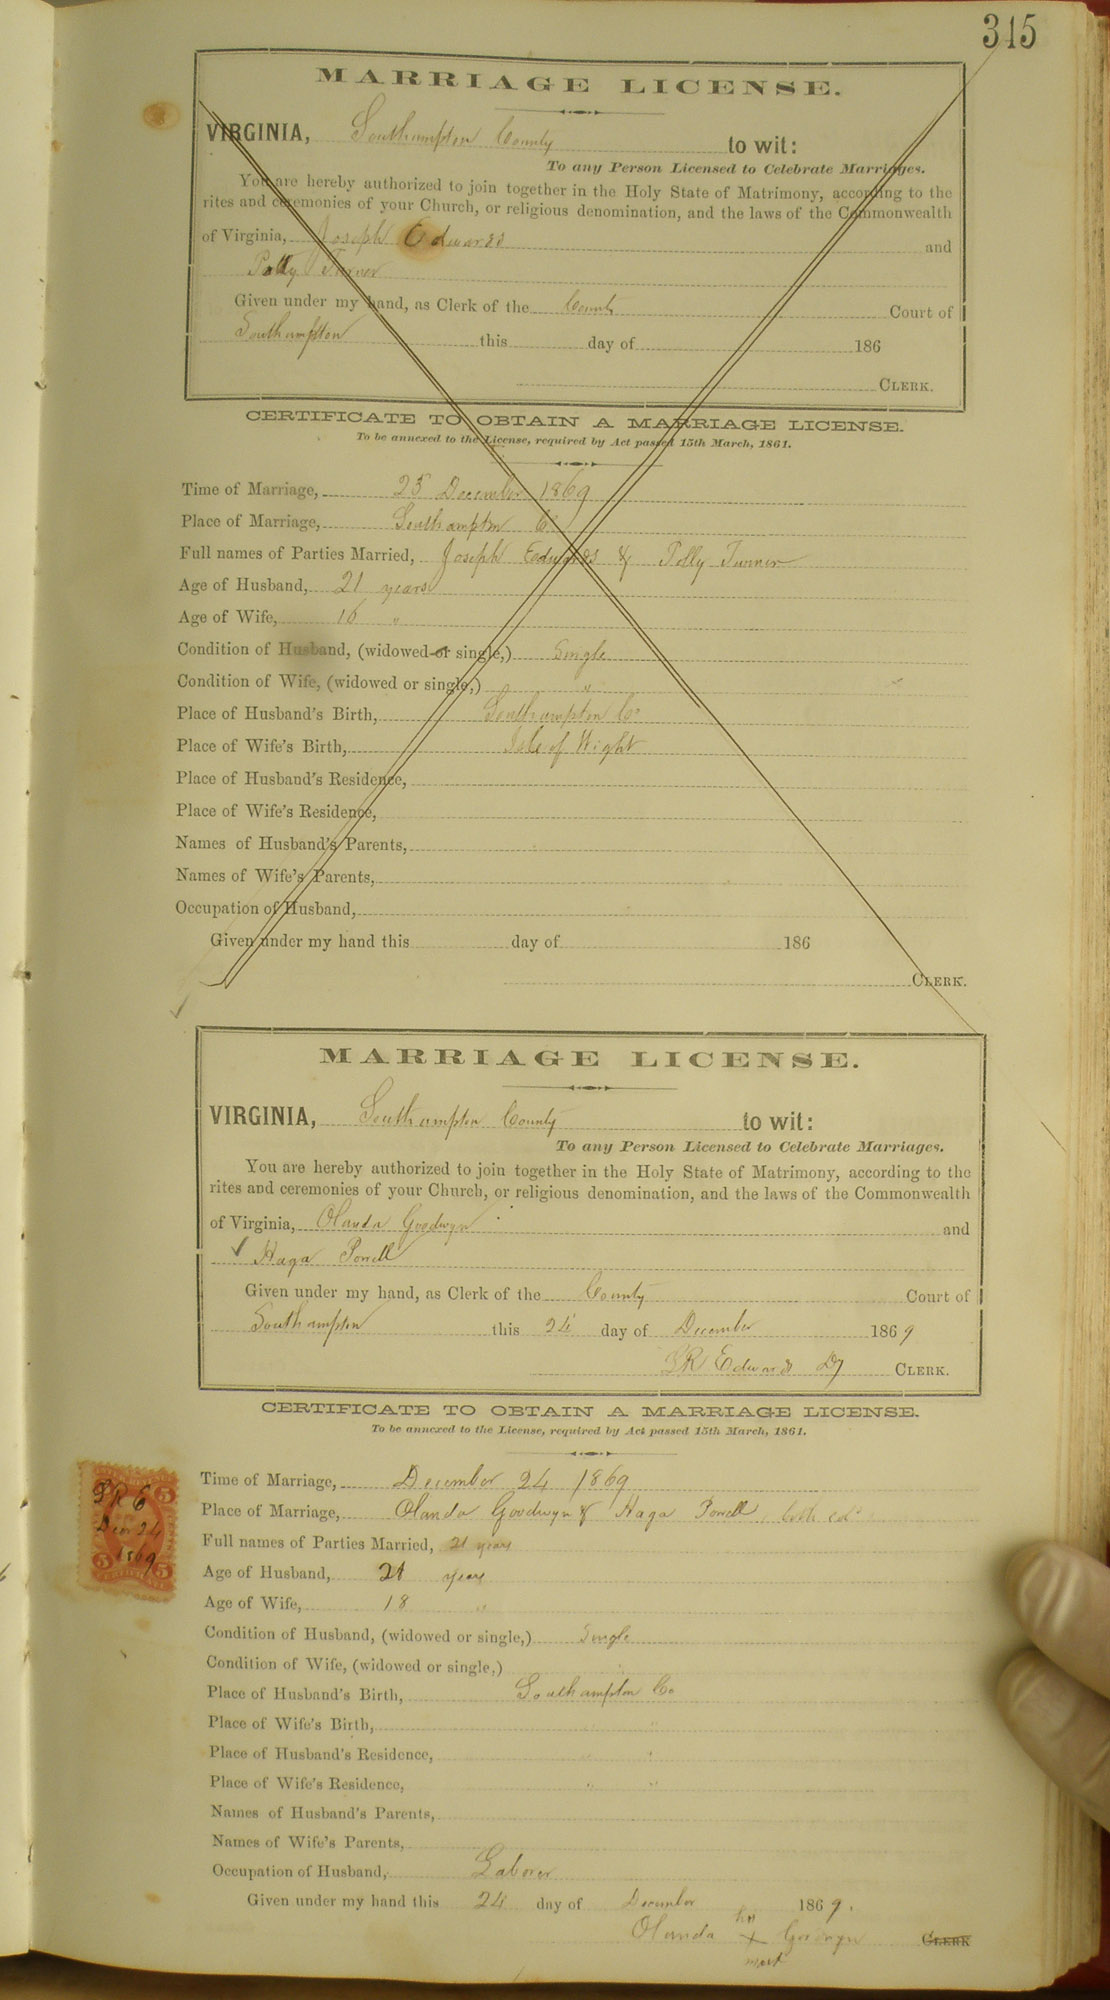 315
MARRIAGE LICENSE.
VIRGINIA, Southampton County to wit:
To any Person Licensed to Celebrate Marriages.
You are hereby authorized to join together in the Holy State of Matrimony, according to the
rites and ceremonies of your Church, or religious denomination, and the laws of the Commonwealth
of Virginia, Joseph Edwards and
Polly Turner
Given under my hand, as Clerk of the County Court of
Southampton this day of 186
CLERK.
CERTIFICATE TO OBTAIN A MARRIAGE LICENSE.
To be annexed to the License, required by Act passed 15th March, 1861.
Time of Marriage, 25 December 1869
Place of Marriage, Southampton Co
Full names of Parties Married, Joseph Edwards & Polly Turner
Age of Husband, 21 years
Age of Wife, 16 "
Condition of Husband, (widowed or single,) Single
Condition of Wife, (widowed or single,) "
Place of Husband's Birth, Southampton Co
Place of Wife's Birth, Isle of Wight
Place of Husband's Residence,
Place of Wife's Residence,
Names of Husband's Parents,
Names of Wife's Parents,
Occupation of Husband,
Given under my hand this day of 186
CLERK.
MARRIAGE LICENSE.
VIRGINIA, Southampton County to wit:
To any Person Licensed to Celebrate Marriages.
You are hereby authorized to join together in the Holy State of Matrimony, according to the
rites and ceremonies of your Church, or religious denomination, and the laws of the Commonwealth
of Virginia, Olanda Goodwyn and
Haga Powell
Given under my hand, as Clerk of the County Court of
Southampton this 24 day of December 1869
LR Edwards Dy CLERK.
CERTIFICATE TO OBTAIN A MARRIAGE LICENSE.
To be annexed to the License, required by Act passed 15th March, 1861.
Time of Marriage, December 24 1869
LR E
Decr 24
1869
5 5 5
CERTIFICATE
Place of Marriage, Olanda Goodwyn & Haga Powell, both cold
Full names of Parties Married, 21 years
Age of Husband, 21 years
Age of Wife, 18 "
Condition of Husband, (widowed or single,) Single
Condition of Wife, (widowed or single,) "
Place of Husband's Birth, Southampton Co
Place of Wife's Birth, " "
Place of Husband's Residence, " "
Place of Wife's Residence, " "
Names of Husband's Parents,
Names of Wife's Parents,
Occupation of Husband, Laborer
Given under my hand this 24 day of December 1869.
his
Olanda X Goodwyn CLERK
mark